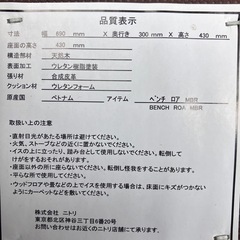 品質表示
寸法 幅 890 mm X 奥行き 300 mm X 高さ 430 mm
座面の高さ 430 mm
構造部材 天然木
表面加工 ウレタン樹脂塗装
張り材 合成皮革
クッション材 ウレタンフォーム
原産国 ベトナム アイテム ベンチ ロア MBR
BENCH ROA MBR
取扱い上の注意
・直射日光があたる場所は避けてください。
・火気、ストーブなどの近くに置かないでください。
・イスの上に立ったり、踏み台として使用しないでください。転倒して
けがをすることがあります。
・座面の端に座らないでください。転倒し怪我をすることがあります。
・平らな所で使用してください。
・ウッドフロアや畳などの上でイスを使用する場合は、床面にキズがつかない
ようにカーペットなどを敷いてください。
株式会社 ニトリ
東京都北区神谷三丁目6番20号
お問い合わせはお近くのニトリ店舗まで